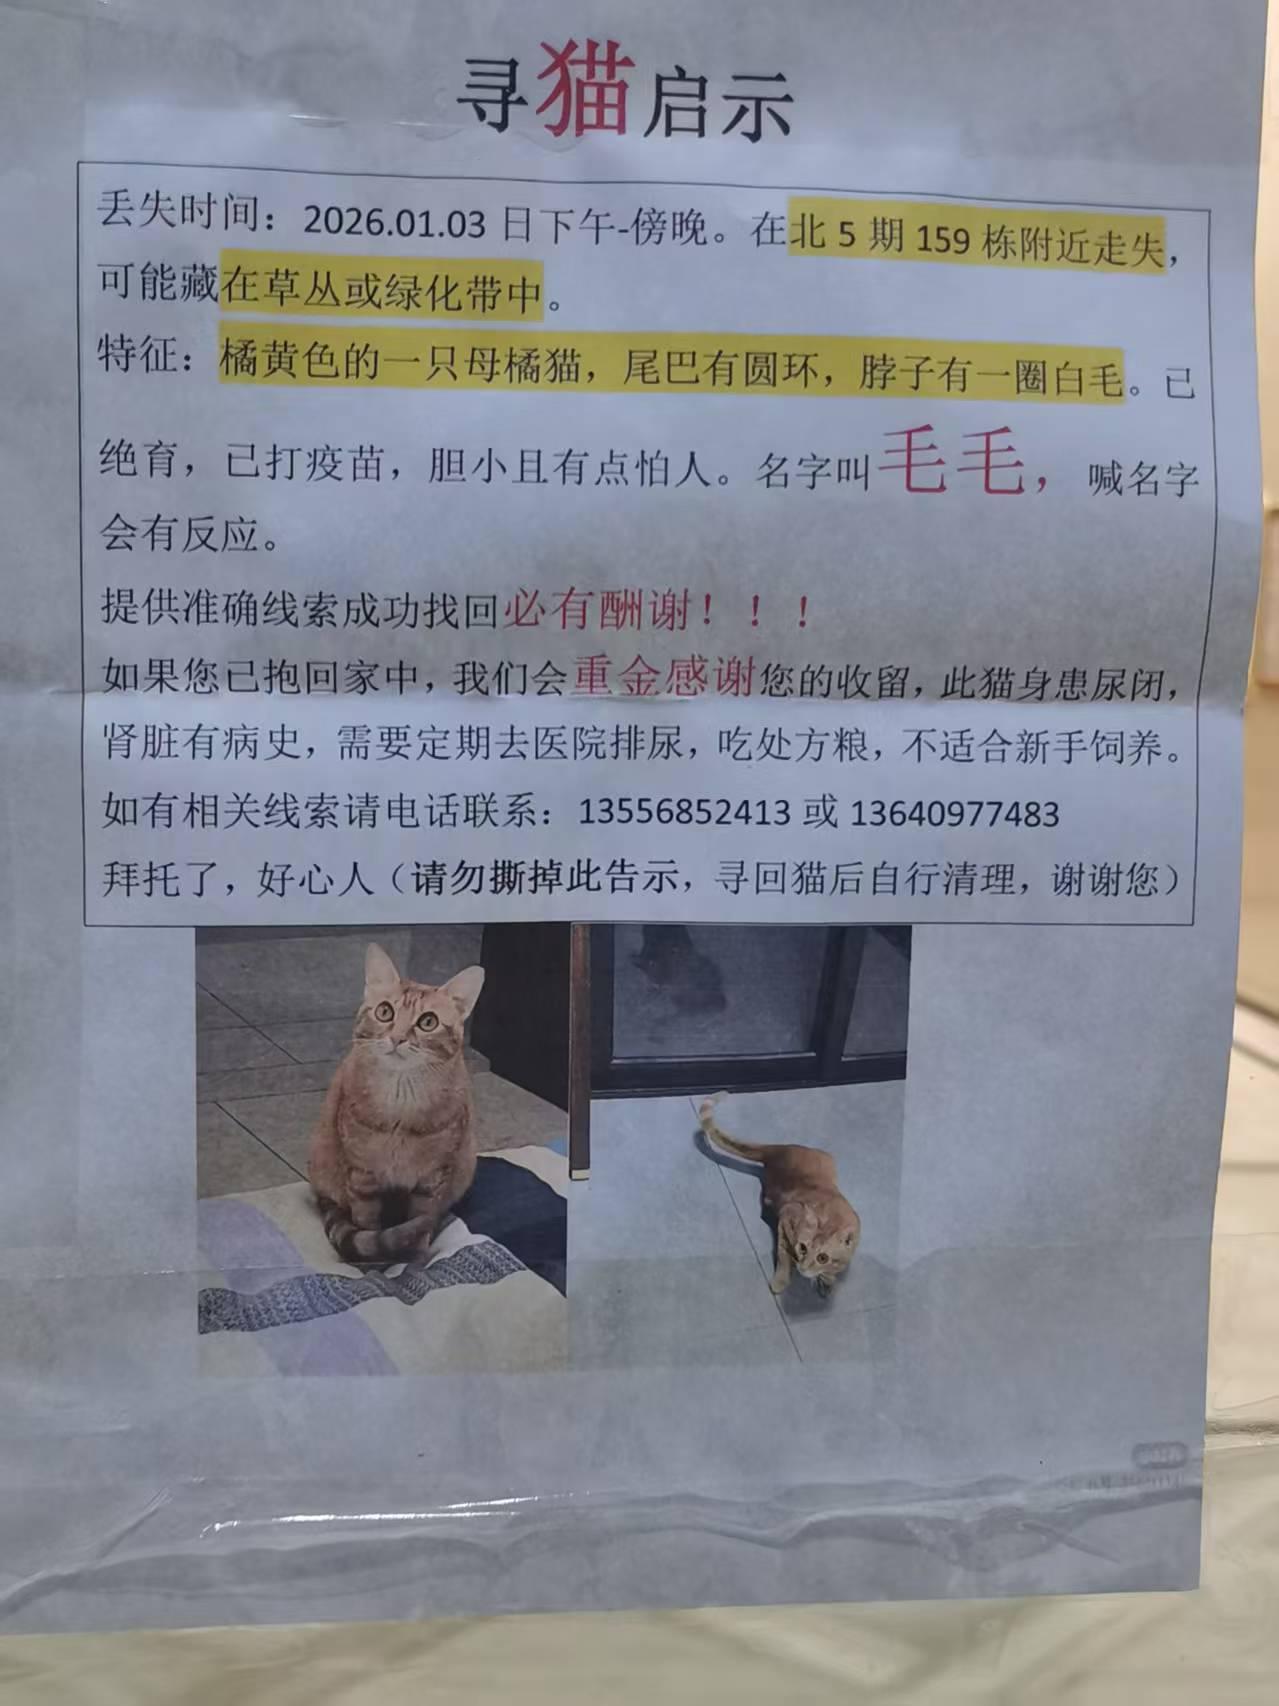 寻猫启示
丢失时间：2026.01.03 日下午-傍晚。在北 5 期 159 栋附近走失，
可能藏在草丛或绿化带中。
特征：橘黄色的一只母橘猫，尾巴有圆环，脖子有一圈白毛。已
绝育，已打疫苗，胆小且有点怕人。名字叫毛毛，喊名字
会有反应。
提供准确线索成功找回必有酬谢！！！
如果您已抱回家中，我们会重金感谢您的收留，此猫身患尿闭，
肾脏有病史，需要定期去医院排尿，吃处方粮，不适合新手饲养。
如有相关线索请电话联系：13556852413 或 13640977483
拜托了，好心人（请勿撕掉此告示，寻回猫后自行清理，谢谢您）